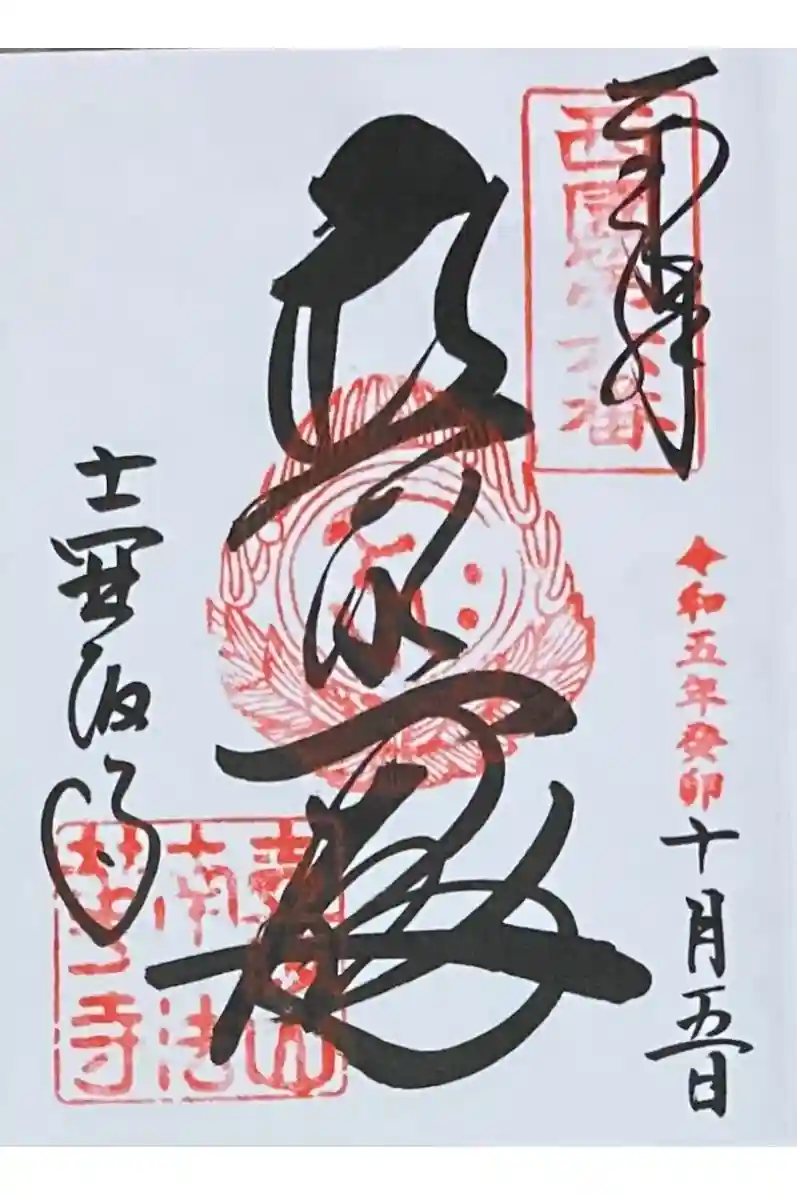 奉拝
西國第六番
令和五年癸卯十月五日
壺阪寺
壺阪山
南法
華寺